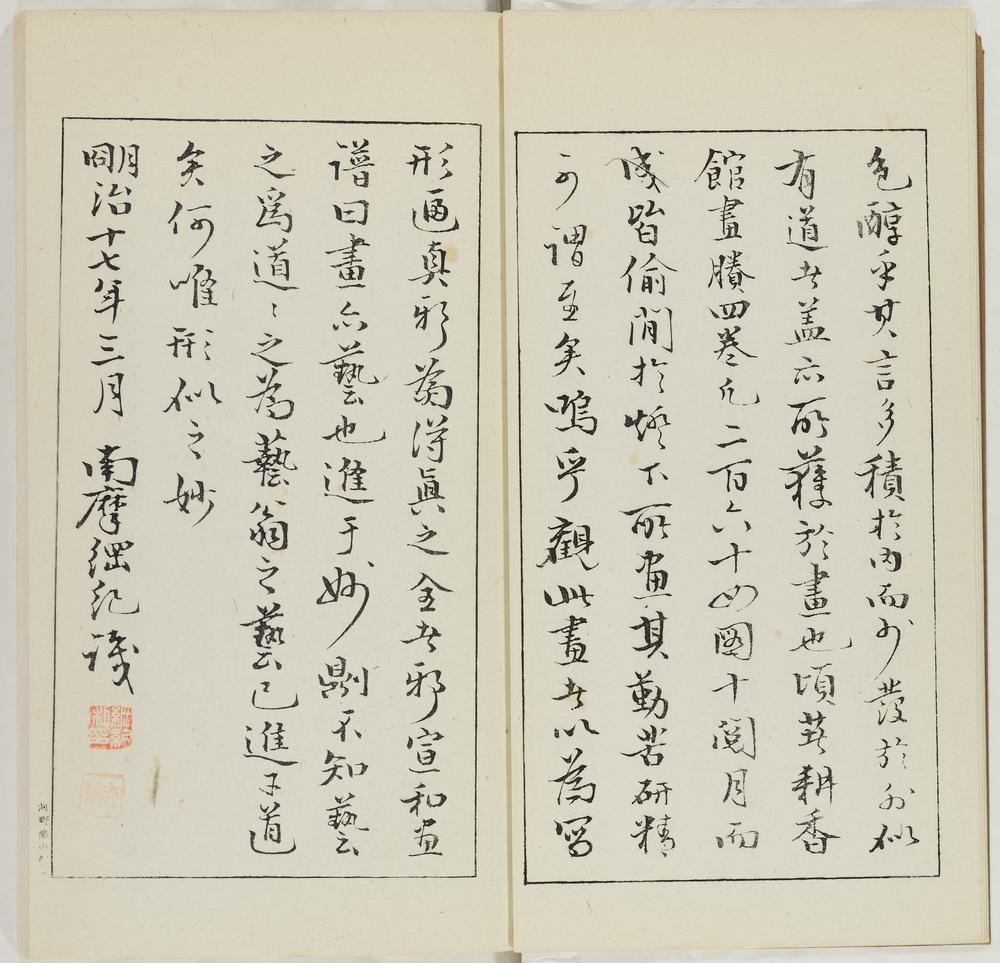 色醇乎其言多積於内而少發於外似
有道者蓋亦所獲於畫也頃著耕香
館畫賸四巻凡二百六十四圖十閲月而
成皆偷閒於燈下所畫其勤苦研精
可謂至矣嗚乎觀此畫者以為寫
形逼真邪為得眞之全者邪宣和畫
譜曰畫亦藝也進于妙則不知藝
之爲道〻之為藝翁之藝已進于道
矣何唯形似之妙
明治十七年三月 南摩綱紀識